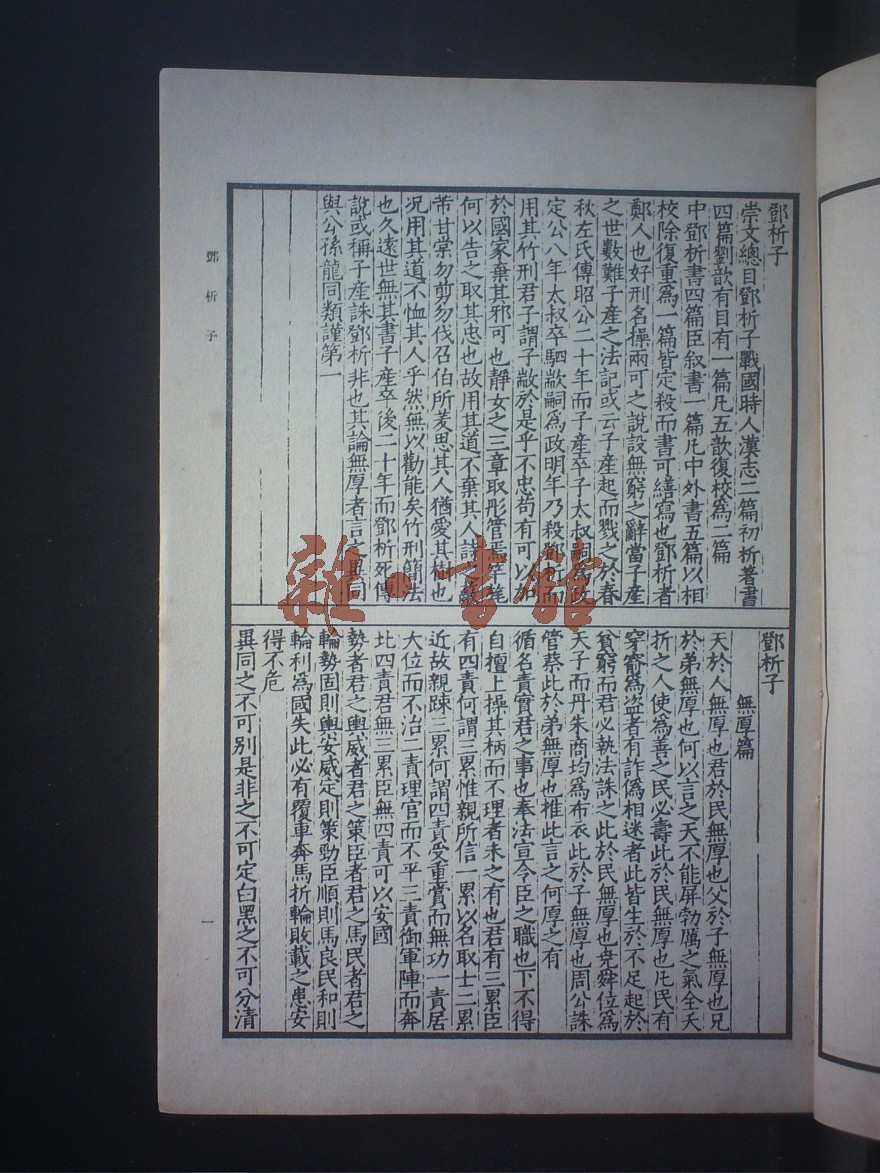 鄧析子
崇文總目鄧析子戰國時人漢志二篇初析著書
四篇劉歆有目有一篇凡五歆復校爲二篇
中鄧析書四篇臣叙書一篇凡中外書五篇以相
校除復重爲一篇皆定殺而書可繕寫也鄧析者
鄭人也好刑名操兩可之說設無窮之辭當子產
之世數難子產之法記或云子產起而戮之於春
秋左氏傳昭公二十年而子產卒子太叔嗣爲政
定公八年太叔卒駟歂嗣爲政明年乃殺鄧析而
用其竹刑君子謂子歂於是乎不忠苟有可以加
於國家棄其邪可也靜女之三章取彤管焉竿旄
何以告之取其忠也故用其道不棄其人詩云蔽
芾甘棠勿剪勿伐召伯所茇思其人猶愛其樹也
况用其道不恤其人乎然無以勸能矣竹刑簡法
也久遠世無其書子產卒後二十年而鄧析死傳
說或稱子產誅鄧析非也其論無厚者言之異同
與公孫龍同類謹第一
鄧析子
無厚篇
天於人無厚也君於民無厚也父於子無厚也兄
於弟無厚也何以言之天不能屏勃厲之氣全夭
折之人使爲善之民必壽此於民無厚也凡民有
穿窬爲盜者有詐僞相迷者此皆生於不足起於
貧窮而君必執法誅之此於民無厚也堯舜位爲
天子而丹朱商均爲布衣此於子無厚也周公誅
管蔡此於弟無厚也推此言之何厚之有
循名責實君之事也奉法宣令臣之職也下不得
自擅上操其柄而不理者未之有也君有三累臣
有四責何謂三累惟親所信一累以名取士二累
近故親踈三累何謂四責受重賞而無功一責居
大位而不治二責理官而不平三責御軍陣而奔
北四責君無三累臣無四責可以安國
勢者君之輿威者君之策臣者君之馬民者君之
輪勢固則輿安威定則策勁臣順則馬良民和則
輪利爲國失此必有覆車奔馬折輪敗載之患安
得不危
異同之不可别是非之不可定白黑之不可分清
鄧析子
一
雜·書館